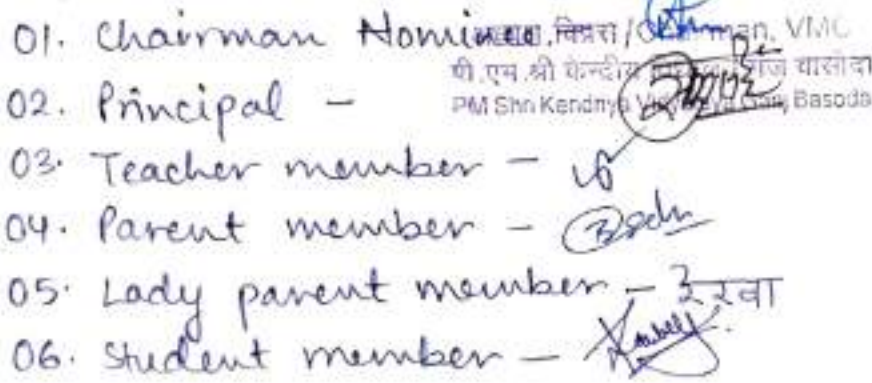 01. Chairman Nominee
विप्रस/Chairman, VMC
पी.एम.श्री केन्द्रीय विद्यालय गंज बासोदा
02. Principal -
PM Shri Kendriya Vidyalaya Ganj Basoda
03. Teacher member -
04. Parent member -
05. Lady parent member - रेखा
06. Student member -